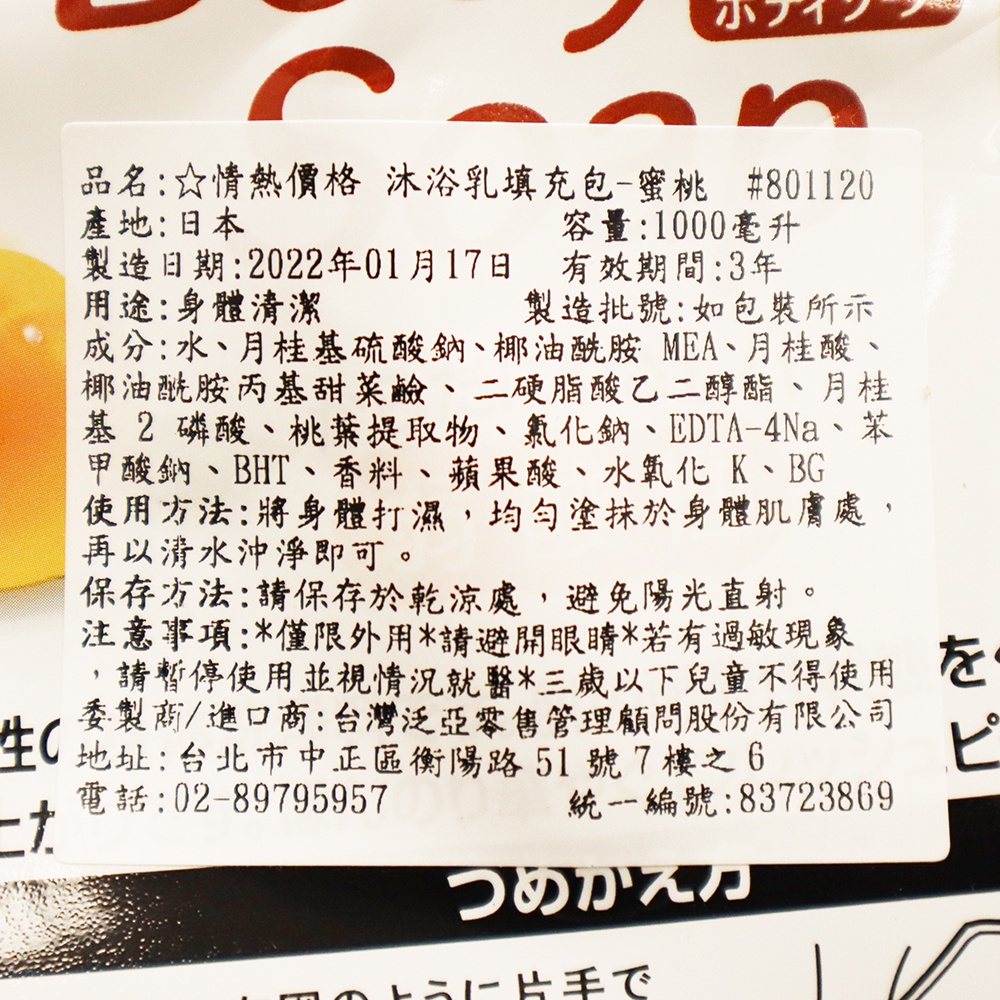 ボディソープ
Body
Soap
品名:☆情熱價格 沐浴乳填充包-蜜桃 #801120
產地:日本 容量:1000毫升
製造日期:2022年01月17日 有效期間:3年
用途:身體清潔 製造批號:如包裝所示
成分:水、月桂基硫酸鈉、椰油酰胺 MEA、月桂酸、
椰油酰胺丙基甜菜鹼、二硬脂酸乙二醇酯、月桂
基 2 磷酸、桃葉提取物、氯化鈉、EDTA-4Na、苯
甲酸鈉、BHT、香料、蘋果酸、水氧化 K、BG
使用方法:將身體打濕，均勻塗抹於身體肌膚處，
再以清水沖淨即可。
保存方法:請保存於乾涼處，避免陽光直射。
注意事項:*僅限外用*請避開眼睛*若有過敏現象
，請暫停使用並視情況就醫*三歲以下兒童不得使用
委製商/進口商:台灣泛亞零售管理顧問股份有限公司
地址:台北市中正區衡陽路 51 號 7 樓之 6
電話:02-89795957 統一編號:83723869
を
性の
ピ
つめかえ方
のように片手で